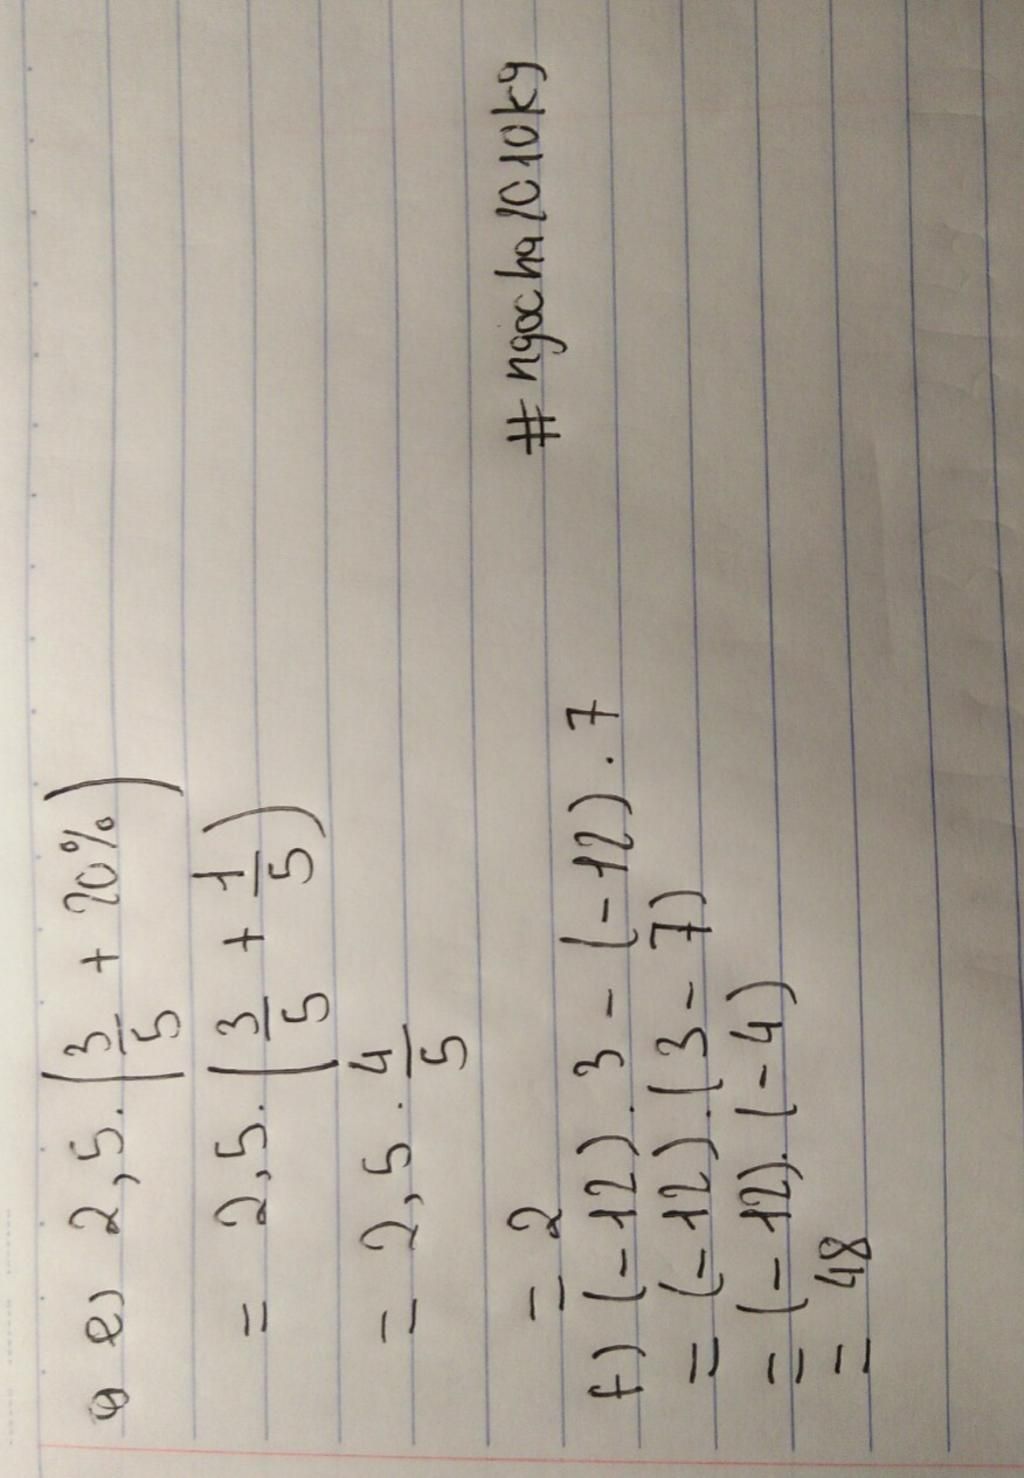 e) 2,5 . (3/5 + 20%)
= 2,5 . (3/5 + 1/5)
= 2,5 . 4/5
= 2
#ngocha2010kg
f) (-12) . 3 - (-12) . 7
= (-12) . (3 - 7)
= (-12) . (-4)
= 48